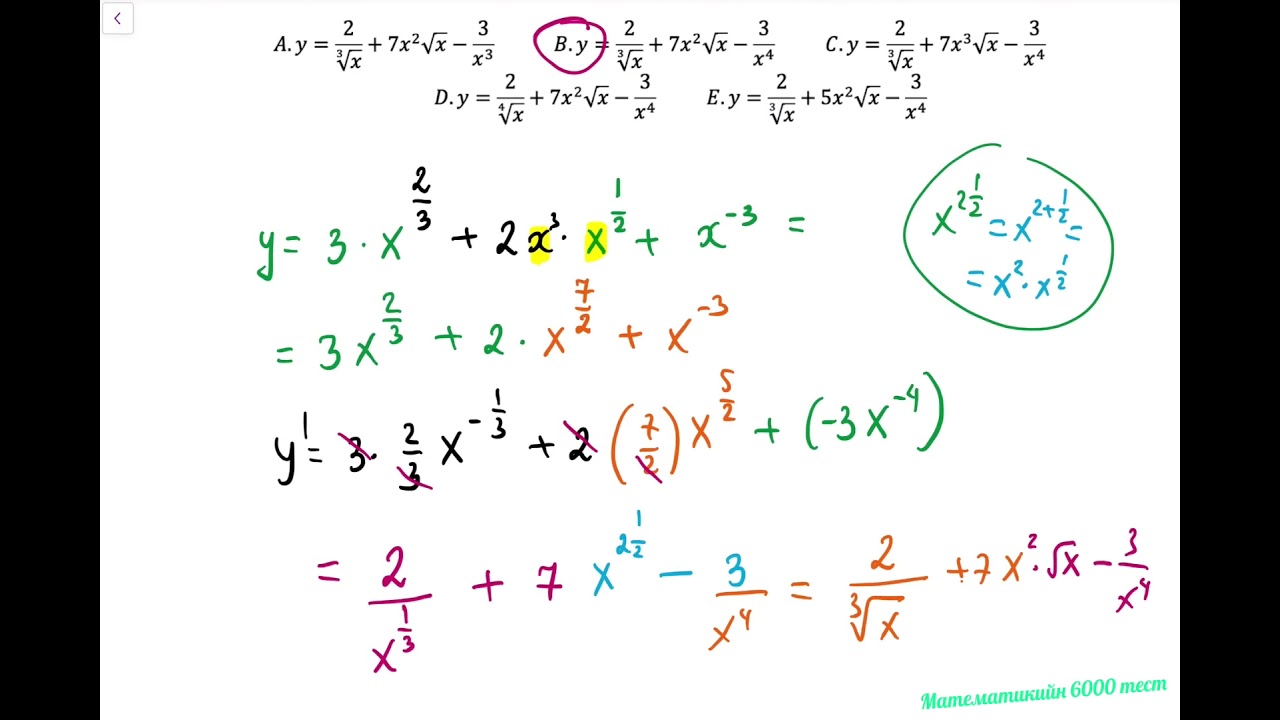 A. y = 2/∛x + 7x²√x − 3/x³ B. y = 2/∛x + 7x²√x − 3/x⁴ C. y = 2/∛x + 7x³√x − 3/x⁴
D. y = 2/∜x + 7x²√x − 3/x⁴ E. y = 2/∛x + 5x²√x − 3/x⁴
y = 3 · x^(2/3) + 2x³ · x^(1/2) + x^(−3) =
x^(2 1/2) = x^(2+1/2) =
= x² · x^(1/2)
= 3x^(2/3) + 2 · x^(7/2) + x^(−3)
y' = 3 · 2/3 x^(−1/3) + 2 (7/2) x^(5/2) + (−3x^(−4))
= 2/x^(1/3) + 7 x^(2 1/2) − 3/x⁴ = 2/∛x + 7x² · √x − 3/x⁴
Математикийн 6000 тест